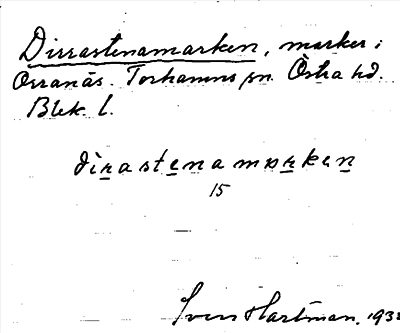 Dirrastenamarken, marker i
Orranäs. Torhamns sn. Östra hd.
Blek. l.
dirastenamarken
15
Sven Hartman. 193